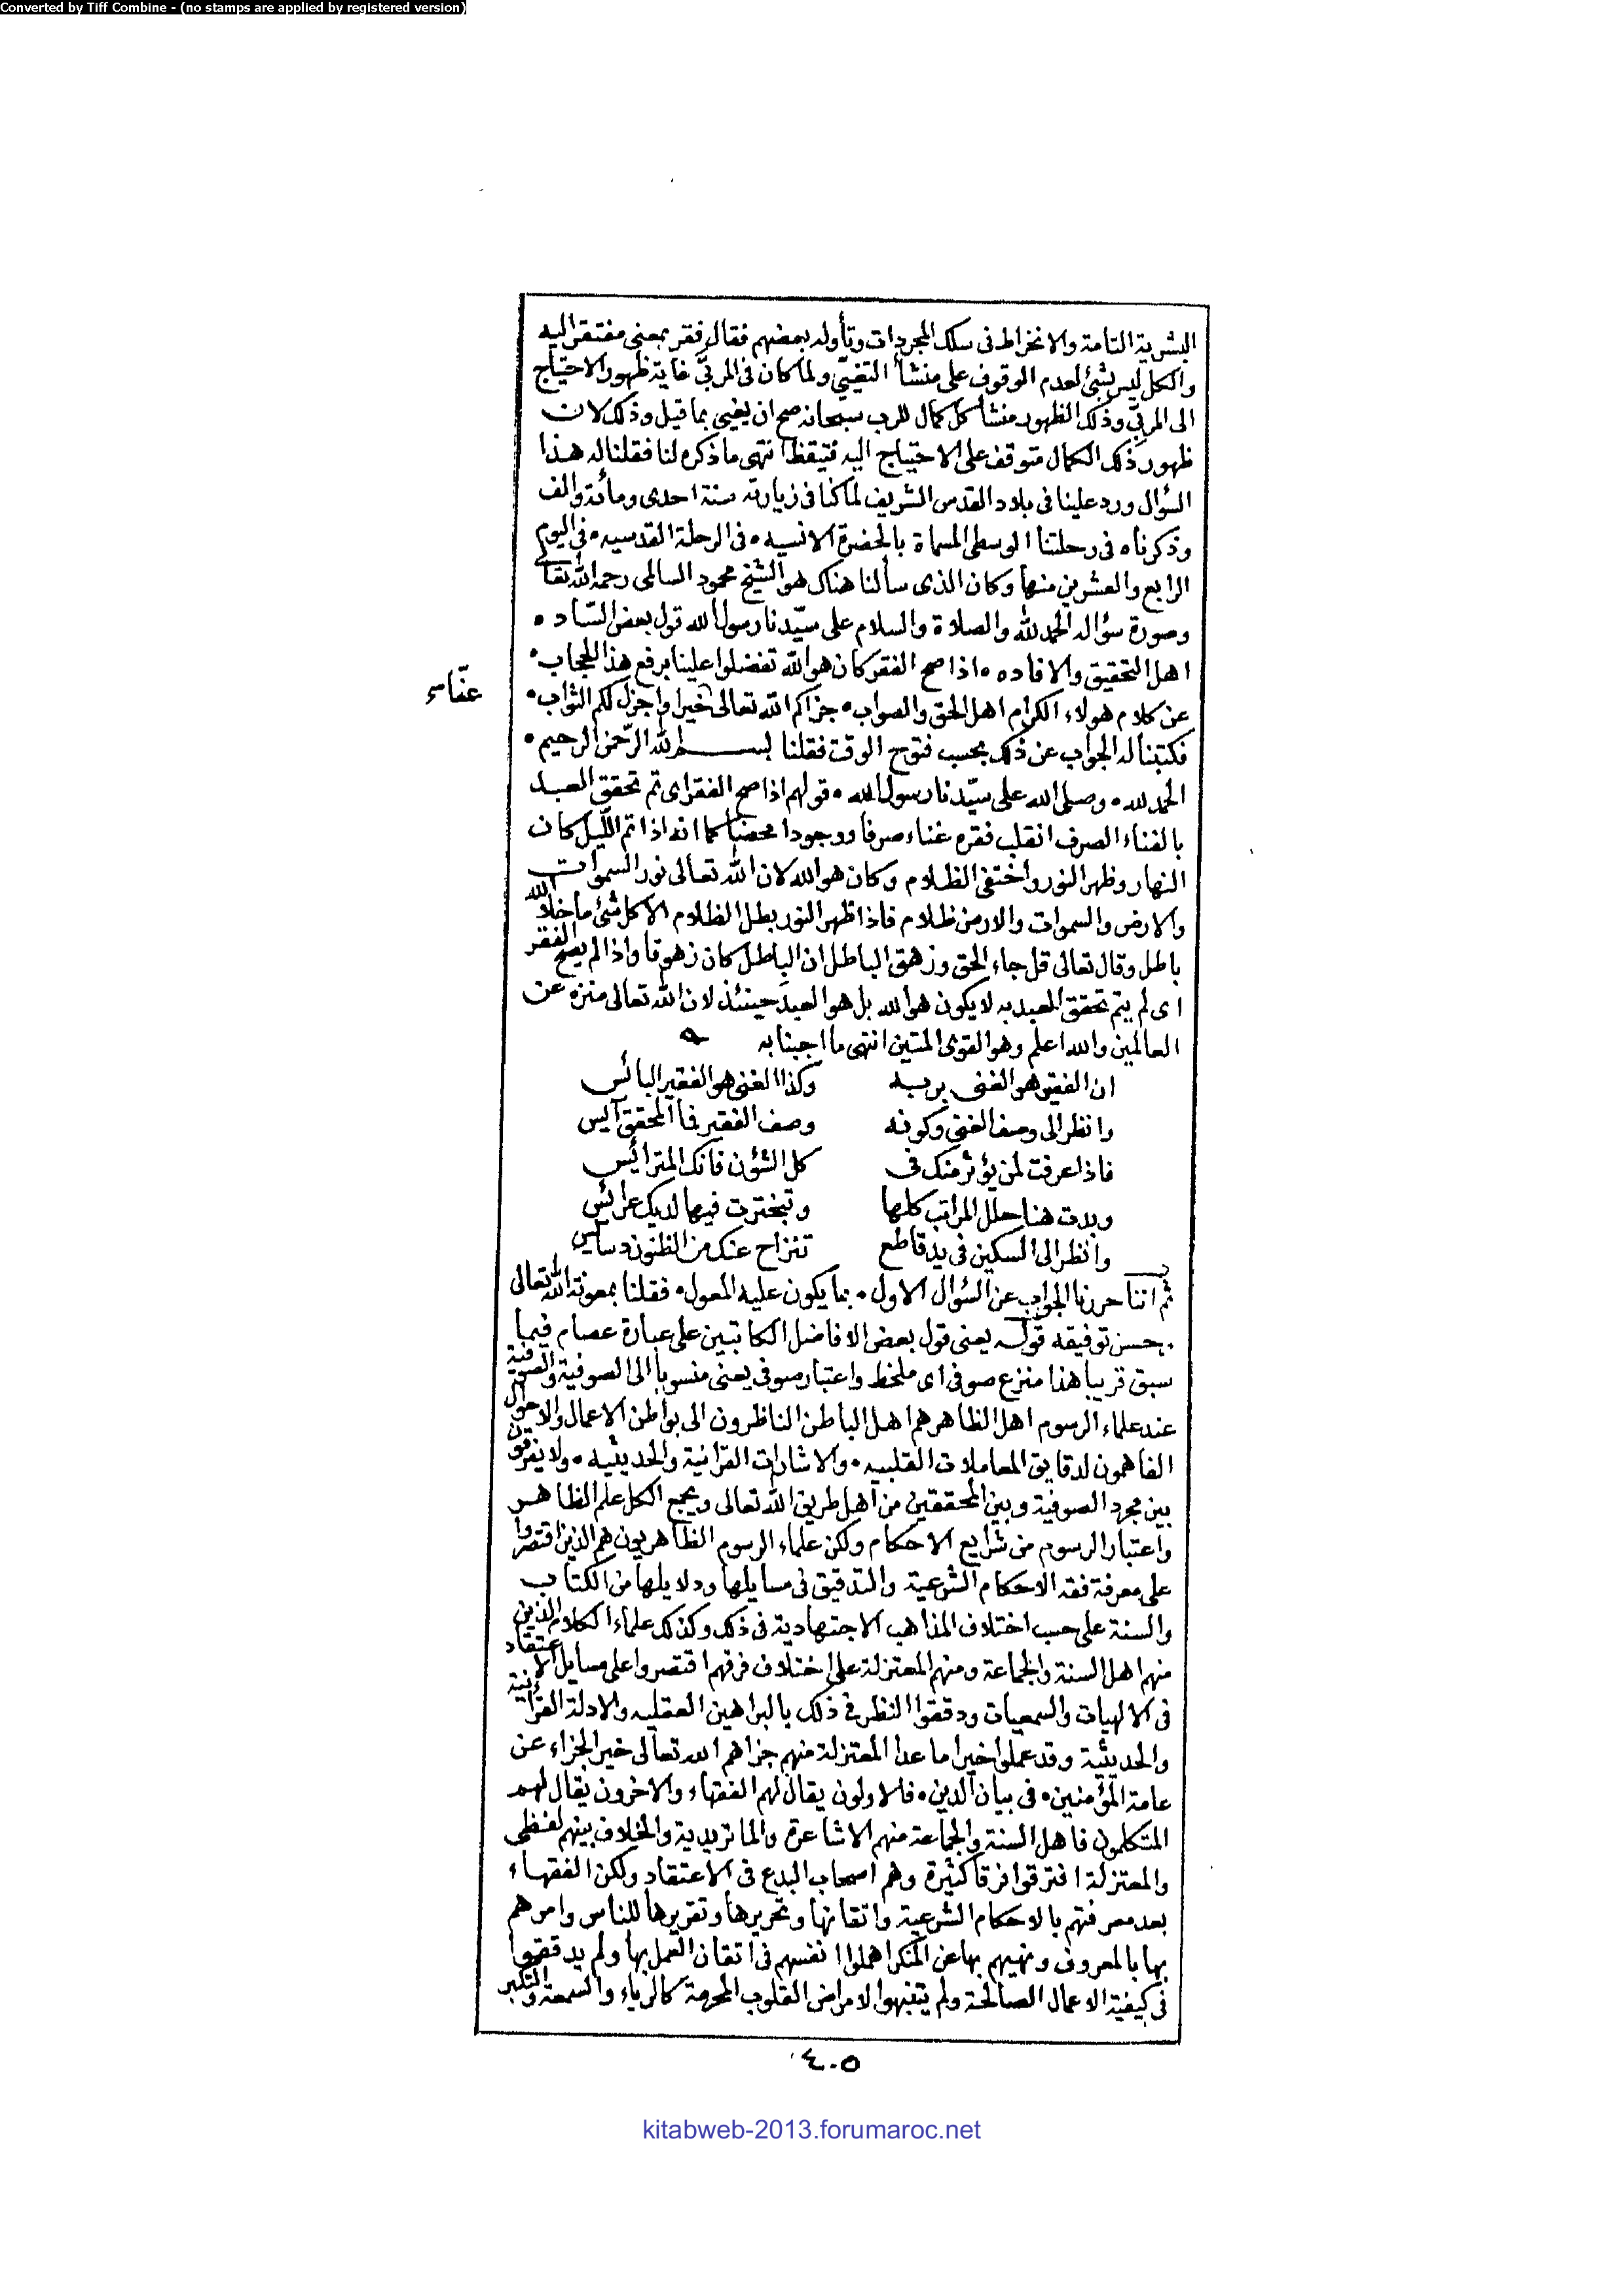 Converted by Tiff Combine - (no stamps are applied by registered version)
البشرية التامة والانخراط فى سلك المجردات وتأوله بعضهم فقال فقر بمعنى مفتقر اليه
والكل ليس بشئ لعدم الوقوف على منشأ التغيى ولما كان فى المربى غاية ظهور الاحتياج
الى المربِّى وذلك الظهور منشأ كل كمال للرب سبحانه صح ان يغيى بما قيل وذلك لان
ظهور ذلك الكمال متوقف على الاحتياج اليه فتيقظ انتهى ما ذكره لنا فقلنا له هذا
السؤال ورد علينا فى بلاد القدس الشريف لما كنا فى زيارته سنة احدى ومأئة والف
وذكرناه فى رحلتنا الوسطى المسماة بالحضرة الانسيه ٥ فى الرحلة القدسيه ٥ فى اليوم
الرابع والعشرين منها وكان الذى سألنا هناك هو الشيخ محمود السالمى رحمه الله تعا
وصورة سؤاله الحمد لله والصلاة والسلام على سيّدنا رسول الله قول بعض السّاده ٠
اهل التحقيق والافاده ٥ اذا صح الفقر كان هو الله تفضلوا علينا برفع هذا الحجاب ٠
عفّا
عن كلام هولاء الكرام اهل الحق والصواب ٠ جزاكم الله تعالى خيرا واجزل لكم الثواب ٠
فكتبنا له الجواب عن ذلك بحسب فتوح الوقت فقلنا بسم الله الرّحمن الرحيم ٠
الحمد لله ٠ وصلى الله على سيّدنا رسول الله ٠ قولهم اذا صح الفقر اى تم تحقق العبد
بالفناء الصرف انقلب فقره غناء صرفا ووجودا محضا كما انه اذا تم اللّيل كان
النهار وظهر النور واختفى الظلام وكان هو الله لان الله تعالى نور السموات
والارض والسموات والارض ظلام فاذا ظهر النور بطل الظلام الا كل شئ ما خلا الله
باطل وقال تعالى قل جاء الحق وزهق الباطل ان الباطل كان زهوقا واذا لم يصح الفقر
اى لم يتم تحقق العبد به لا يكون هو الله بل هو العبد حينئذ لان الله تعالى منزه عن
العالمين والله اعلم وهو القوى المتين انتهى ما اجبنا به
ان الفقير هو الغنى بربه وكذا الغنى هو الفقير البائس
وانظر الى وصف الغنى وكونه وصف الفقير فما المحقق آيس
فاذا عرفت لمن يؤثر منك فى كل الشؤن فانك المترائس
وبدت هنا حلل المراتب كلها وتبخترت فيها لديك عرائس
وانظر الى السكين فى يد قاطع تنزاح عنك من الظنون دسائس
ثم اننا حررنا الجواب عن السؤال الاول ٠ بما يكون عليه المعول ٠ فقلنا بمعونة الله تعالى
وبحسن توفيقه قوله يعنى قول بعض الافاضل الكاتبين على عبارة عصام فيما
سبق قريبا هذا منزع صوفى اى ملحظ واعتبار صوفى يعنى منسوبا الى الصوفية والصوفية
عند علماء الرسوم اهل الظاهر هم اهل الباطن الناظرون الى بواطن الاعمال والاحوال
الفاهمون لدقايق المعاملات القلبيه ٠ والاشارات القرانية والحديثيه ٠ ولا يفرقون
بين مجرد الصوفية وبين المحققين من اهل طريق الله تعالى ويجمع الكل علم الظاهر
واعتبار الرسوم من شرايع الاحكام ولكن علماء الرسوم الظاهريون هم الذين اقتصروا
على معرفة فقه الاحكام الشرعية والتدقيق فى مسايلها ودلايلها من الكتاب
والسنة على حسب اختلاف المذاهب الاجتهادية فى ذلك وكذلك علماء الكلام الذين
منهم اهل السنة والجماعة ومنهم المعتزلة على اختلاف فرقهم اقتصروا على مسايل الاعتقاد
فى الالهيات والسمعيات ودققوا النظر فى ذلك بالبراهين العقليه والادلة القرآنية
والحديثية وقد عملوا خيرا ما عدا المعتزلة منهم جزاهم الله تعالى خير الجزاء عن
عامة المؤمنين ٠ فى بيان الدين ٠ فالاولون يقال لهم الفقهاء والاخرون يقال لهم
المتكلمون فاهل السنة والجماعة منهم الاشاعرة والماتريدية والخلاف بينهم لفظى
والمعتزلة افترقوا فرقا كثيرة وهم اصحاب البدع فى الاعتقاد ولكن الفقهاء
بعد معرفتهم بالاحكام الشرعية واتقانها وتحريرها وتقريرها للناس وامرهم
بها بالمعروف ونهيهم بها عن المنكر اهملوا انفسهم فى اتقان العمل بها ولم يدققوا
فى كيفية الاعمال الصالحة ولم يتنبهوا لامراض القلوب المحرمة كالرياء والسمعة والتكبر
٤٠٥
kitabweb-2013.forumaroc.net